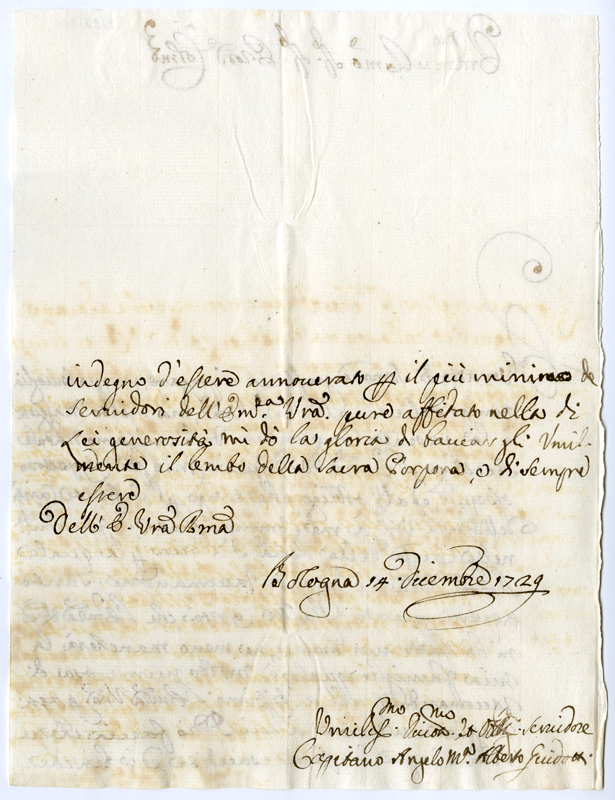 indegno d'essere annoverato il più minimo de
Servidori dell'Emza Vra. pure affidato nella di
Lei generosità mi dò la gloria di baciargli Umil-
mente il lembo della Sacra Porpora, e di sempre
essere
Dell'E. Vra Rma
Bologna 14. Dicembre 1729
Umiliss. Servidore
Capitano Angelo Ma. Alberto Guidotti